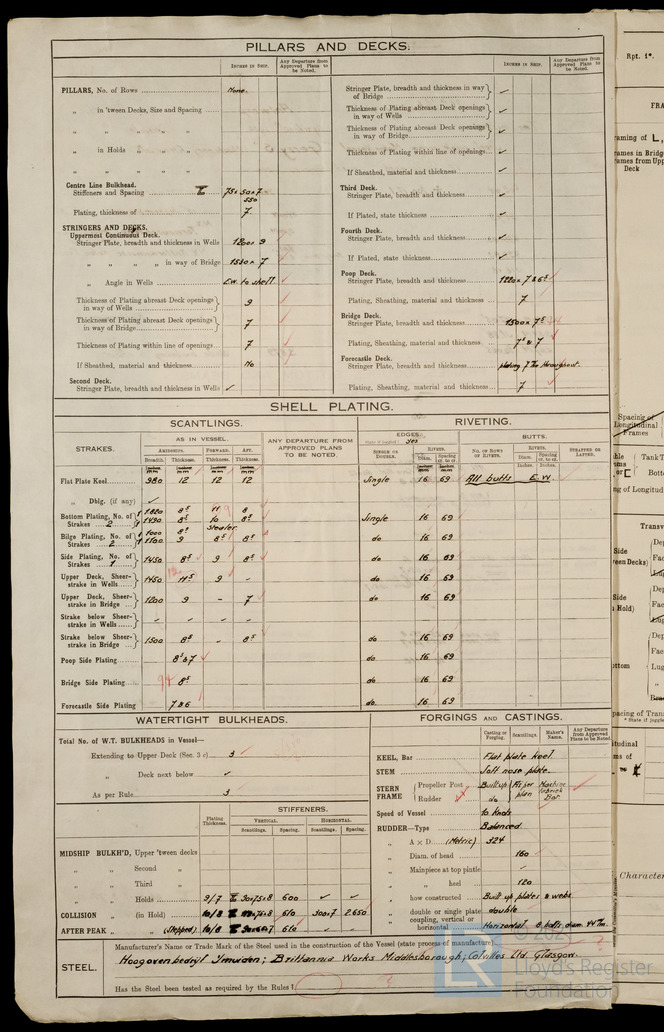 PILLARS AND DECKS.
Inches in Ship. Any Departure from Approved Plans to be Noted.
PILLARS, No. of Rows None.
„ in 'tween Decks, Size and Spacing
„ „ „ „
„ in Holds „ „
„ „ „ „
Centre Line Bulkhead.
Stiffeners and Spacing 75x50x7
550
Plating, thickness of 7
STRINGERS AND DECKS.
Uppermost Continuous Deck.
Stringer Plate, breadth and thickness in Wells 1200x 9
„ „ „ „ in way of Bridge 1550x 7
„ Angle in Wells E.W. to shell
Thickness of Plating abreast Deck openings in way of Wells 9
Thickness of Plating abreast Deck openings in way of Bridge 7
Thickness of Plating within line of openings 7
If Sheathed, material and thickness No
Second Deck.
Stringer Plate, breadth and thickness in Wells ✓
Inches in Ship. Any Departure from Approved Plans to be Noted.
Stringer Plate, breadth and thickness in way of Bridge ✓
Thickness of Plating abreast Deck openings in way of Wells ✓
Thickness of Plating abreast Deck openings in way of Bridge ✓
Thickness of Plating within line of openings ✓
If Sheathed, material and thickness ✓
Third Deck.
Stringer Plate, breadth and thickness ✓
If Plated, state thickness ✓
Fourth Deck.
Stringer Plate, breadth and thickness ✓
If Plated, state thickness ✓
Poop Deck.
Stringer Plate, breadth and thickness 1220x 7 & 6⁵
Plating, Sheathing, material and thickness 7
Bridge Deck.
Stringer Plate, breadth and thickness 1500x 7⁵
Plating, Sheathing, material and thickness 7⁵ & 7
Forecastle Deck.
Stringer Plate, breadth and thickness plating 7 m/m throughout.
Plating, Sheathing, material and thickness 7
SHELL PLATING.
SCANTLINGS. RIVETING.
STRAKES. AS IN VESSEL. ANY DEPARTURE FROM APPROVED PLANS TO BE NOTED. EDGES. Yes BUTTS.
Amidships. Forward. Aft. Single or Double. Rivets. No. of Rows of Rivets. Rivets. Strapped or Lapped.
Breadth. Thickness. Thickness. Thickness. Diam. Spacing cr. to cr. Diam. Spacing cr. to cr.
Flat Plate Keel 980 12 12 12 Single 16 69 All butts E.W.
„ Dblg. (if any) ✓
Bottom Plating, No. of Strakes 2 1820 8⁵ 11 8
1490 8⁵ to 8⁵ Single 16 69
Bilge Plating, No. of Strakes 2 1000 8⁵ Stealer
1500 9 8⁵ 8⁵ do 16 69
Side Plating, No. of Strakes 1 1450 8⁵ 9 8⁵ do 16 69
Upper Deck, Sheerstrake in Wells 1450 11⁵ 9 - do 16 69
Upper Deck, Sheerstrake in Bridge 1200 9 - 7 do 16 69
Strake below Sheerstrake in Wells - - - -
Strake below Sheerstrake in Bridge 1500 8⁵ - 8⁵ do 16 69
Poop Side Plating 8⁵ & 7 do 16 69
Bridge Side Plating 8⁵ do 16 69
Forecastle Side Plating 7 & 6 do 16 69
WATERTIGHT BULKHEADS.
Total No. of W.T. BULKHEADS in Vessel—
Extending to Upper Deck (Sec. 3 c) 3
„ Deck next below ✓
As per Rule 3
STIFFENERS.
Plating Thickness. VERTICAL. HORIZONTAL.
Scantlings. Spacing. Scantlings. Spacing.
MIDSHIP BULKH'D, Upper 'tween decks
„ „ Second „
„ „ Third „
„ „ Holds 9/7 90x75x8 600 ✓ ✓
COLLISION „ (in Hold) 10/8 610 300x7 2650
AFTER PEAK „ „ (Stepped) 10/8 610 - -
FORGINGS AND CASTINGS.
Casting or Forging. Scantlings. Maker's Name. Any Departure from Approved Plans to be Noted.
KEEL, Bar Flat plate keel.
STEM Soft nose plate.
STERN FRAME Propeller Post Built up As per plan
Rudder „ do
Speed of Vessel 10 knots
RUDDER—Type Balanced.
„ A × D (Metric) 324
„ Diam. of head 160
„ Mainpiece at top pintle ✓
„ „ heel 120
„ how constructed Built up plates & webs.
„ double or single plate double
„ coupling, vertical or horizontal Horizontal 6 bolts diam 44 m/m.
STEEL.
Manufacturer's Name or Trade Mark of the Steel used in the construction of the Vessel (state process of manufacture)
Hoogovenbedrijf Ymuiden; Brittannia Works Middlesborough; Colvilles Ltd Glasgow.
Has the Steel been tested as required by the Rules?
© 2021
LR Lloyd's Register
Foundation
Rpt. 1*.